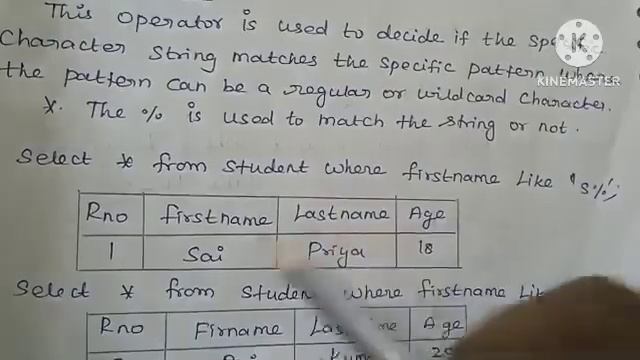 This operator is used to decide if the
Character string matches the specific pattern
the pattern can be a regular or wildcard character.
* The % is used to match the string or not.
Select * from student where firstname Like 's%';
Rno firstname Lastname Age
1 Sai Priya 18
Select * from student where firstname
Rno Firname Age
K
KINEMASTER